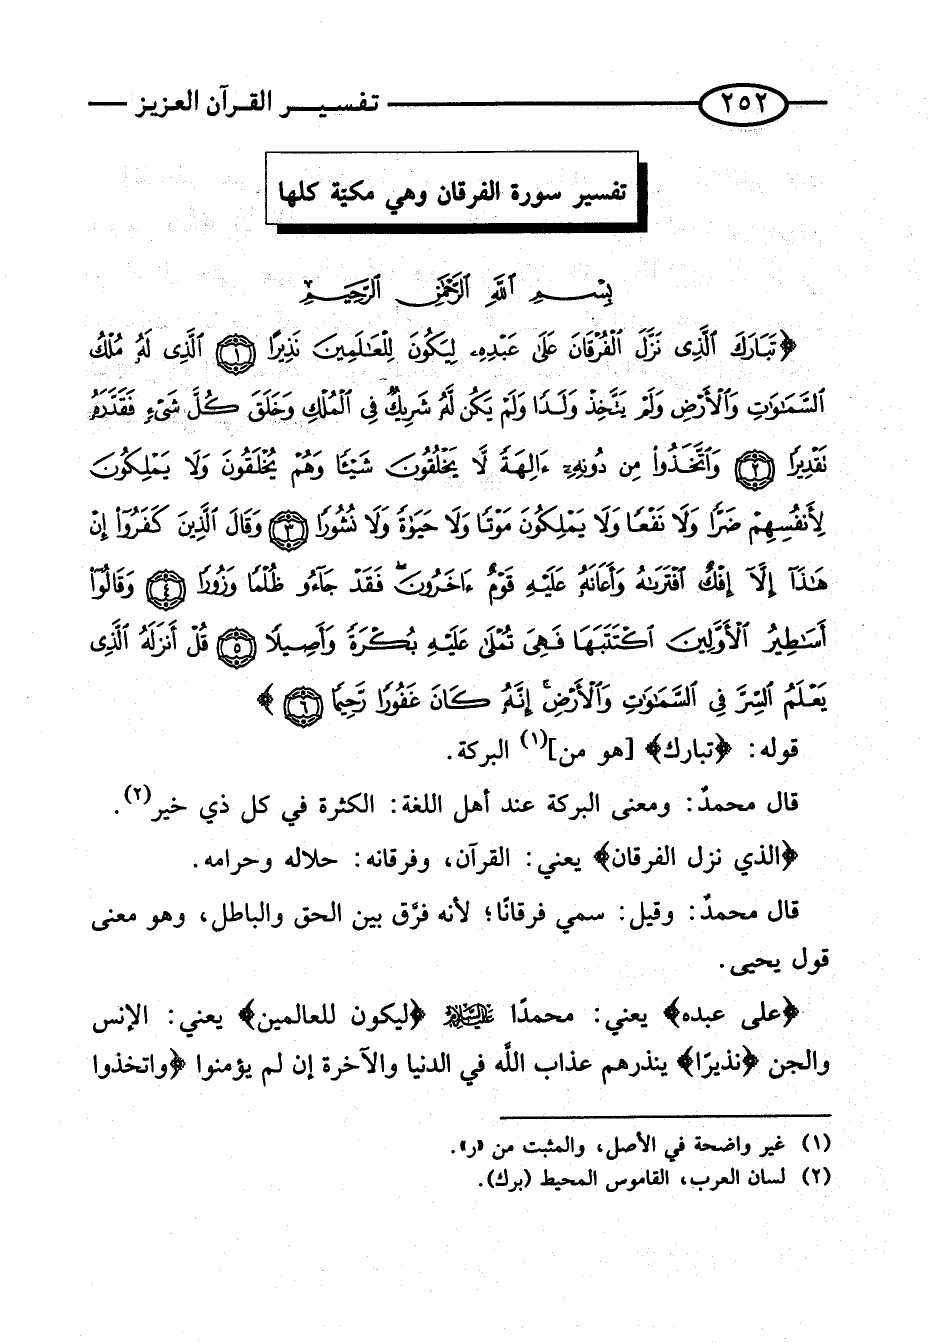 ٢٥٢ تفسير القرآن العزيز
تفسير سورة الفرقان وهي مكيّة كلها
بِسْمِ اللَّهِ الرَّحْمَٰنِ الرَّحِيمِ
﴿تَبَارَكَ ٱلَّذِى نَزَّلَ ٱلْفُرْقَانَ عَلَىٰ عَبْدِهِۦ لِيَكُونَ لِلْعَـٰلَمِينَ نَذِيرًا ﴿١﴾ ٱلَّذِى لَهُۥ مُلْكُ
ٱلسَّمَـٰوَٰتِ وَٱلْأَرْضِ وَلَمْ يَتَّخِذْ وَلَدًا وَلَمْ يَكُن لَّهُۥ شَرِيكٌ فِى ٱلْمُلْكِ وَخَلَقَ كُلَّ شَىْءٍ فَقَدَّرَهُۥ
تَقْدِيرًا ﴿٢﴾ وَٱتَّخَذُوا۟ مِن دُونِهِۦٓ ءَالِهَةً لَّا يَخْلُقُونَ شَيْـًٔا وَهُمْ يُخْلَقُونَ وَلَا يَمْلِكُونَ
لِأَنفُسِهِمْ ضَرًّا وَلَا نَفْعًا وَلَا يَمْلِكُونَ مَوْتًا وَلَا حَيَوٰةً وَلَا نُشُورًا ﴿٣﴾ وَقَالَ ٱلَّذِينَ كَفَرُوٓا۟ إِنْ
هَـٰذَآ إِلَّآ إِفْكٌ ٱفْتَرَىٰهُ وَأَعَانَهُۥ عَلَيْهِ قَوْمٌ ءَاخَرُونَ ۖ فَقَدْ جَآءُو ظُلْمًا وَزُورًا ﴿٤﴾ وَقَالُوٓا۟
أَسَـٰطِيرُ ٱلْأَوَّلِينَ ٱكْتَتَبَهَا فَهِىَ تُمْلَىٰ عَلَيْهِ بُكْرَةً وَأَصِيلًا ﴿٥﴾ قُلْ أَنزَلَهُ ٱلَّذِى
يَعْلَمُ ٱلسِّرَّ فِى ٱلسَّمَـٰوَٰتِ وَٱلْأَرْضِ ۚ إِنَّهُۥ كَانَ غَفُورًا رَّحِيمًا ﴿٦﴾ ﴾
قوله: ﴿تبارك﴾ [هو من](١) البركة.
قال محمدٌ: ومعنى البركة عند أهل اللغة: الكثرة في كل ذي خير(٢).
﴿الذي نزل الفرقان﴾ يعني: القرآن، وفرقانه: حلاله وحرامه.
قال محمدٌ: وقيل: سمي فرقانًا؛ لأنه فرَّق بين الحق والباطل، وهو معنى
قول يحيى.
﴿على عبده﴾ يعني: محمدًا عليه السلام ﴿ليكون للعالمين﴾ يعني: الإنس
والجن ﴿نذيرًا﴾ ينذرهم عذاب اللَّه في الدنيا والآخرة إن لم يؤمنوا ﴿واتخذوا
(١) غير واضحة في الأصل، والمثبت من «ر».
(٢) لسان العرب، القاموس المحيط (برك).